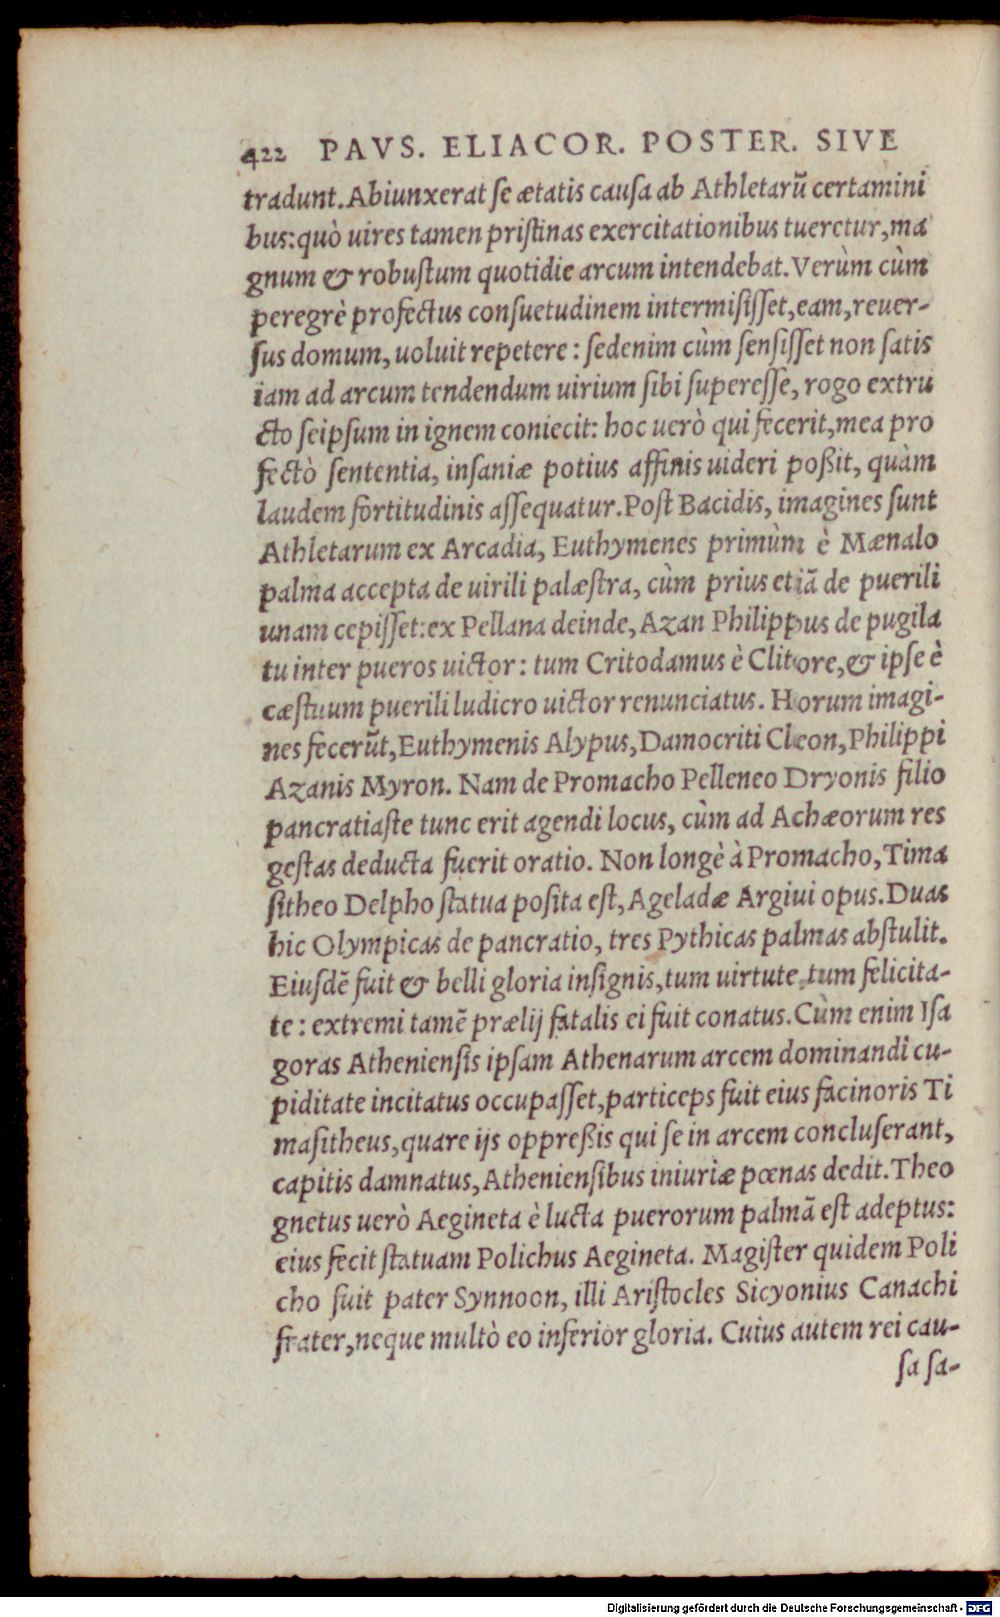 422 PAVS. ELIACOR. POSTER. SIVE
tradunt. Abiunxerat se ætatis causa ab Athletarũ certamini
bus: quò uires tamen pristinas exercitationibus tueretur, ma
gnum & robustum quotidie arcum intendebat. Verùm cùm
peregrè profectus consuetudinem intermisisset, eam, reuer-
sus domum, uoluit repetere: sedenim cùm sensisset non satis
iam ad arcum tendendum uirium sibi superesse, rogo extru
cto seipsum in ignem coniecit: hoc uerò qui fecerit, mea pro
fectò sententia, insaniæ potius affinis uideri poßit, quàm
laudem fortitudinis assequatur. Post Bacidis, imagines sunt
Athletarum ex Arcadia, Euthymenes primùm è Mænalo
palma accepta de uirili palæstra, cùm prius etiã de puerili
unam cepisset: ex Pellana deinde, Azan Philippus de pugila
tu inter pueros uictor: tum Critodamus è Clitore, & ipse è
cæstuum puerili ludicro uictor renunciatus. Horum imagi-
nes fecerũt, Euthymenis Alypus, Damocriti Cleon, Philippi
Azanis Myron. Nam de Promacho Pelleneo Dryonis filio
pancratiaste tunc erit agendi locus, cùm ad Achæorum res
gestas deducta fuerit oratio. Non longè à Promacho, Tima
sitheo Delpho statua posita est, Ageladæ Argiui opus. Duas
hic Olympicas de pancratio, tres Pythicas palmas abstulit.
Eiusdẽ fuit & belli gloria insignis, tum uirtute, tum felicita-
te: extremi tamẽ prælij fatalis ei fuit conatus. Cùm enim Isa
goras Atheniensis ipsam Athenarum arcem dominandi cu-
piditate incitatus occupasset, particeps fuit eius facinoris Ti
masitheus, quare ijs oppreßis qui se in arcem concluserant,
capitis damnatus, Atheniensibus iniuriæ pœnas dedit. Theo
gnetus uerò Aegineta è lucta puerorum palmã est adeptus:
eius fecit statuam Polichus Aegineta. Magister quidem Poli
cho fuit pater Synnoon, illi Aristocles Sicyonius Canachi
frater, neque multò eo inferior gloria. Cuius autem rei cau-
sa sa-
Digitalisierung gefördert durch die Deutsche Forschungsgemeinschaft - DFG